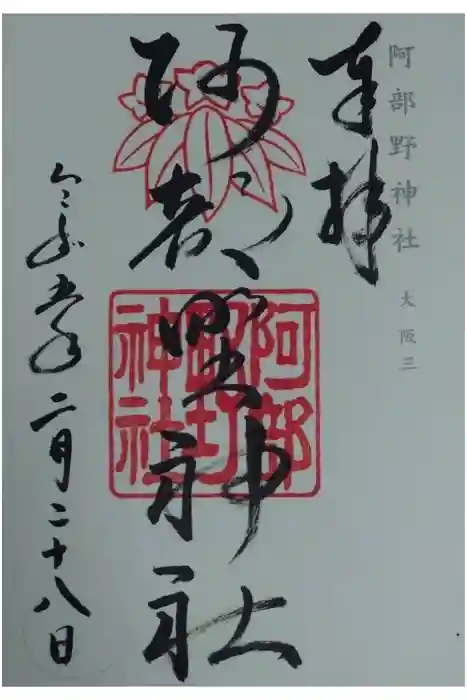 阿部野神社 大阪三
奉拝
阿部野神社
阿部野神社
令和五年二月二十八日